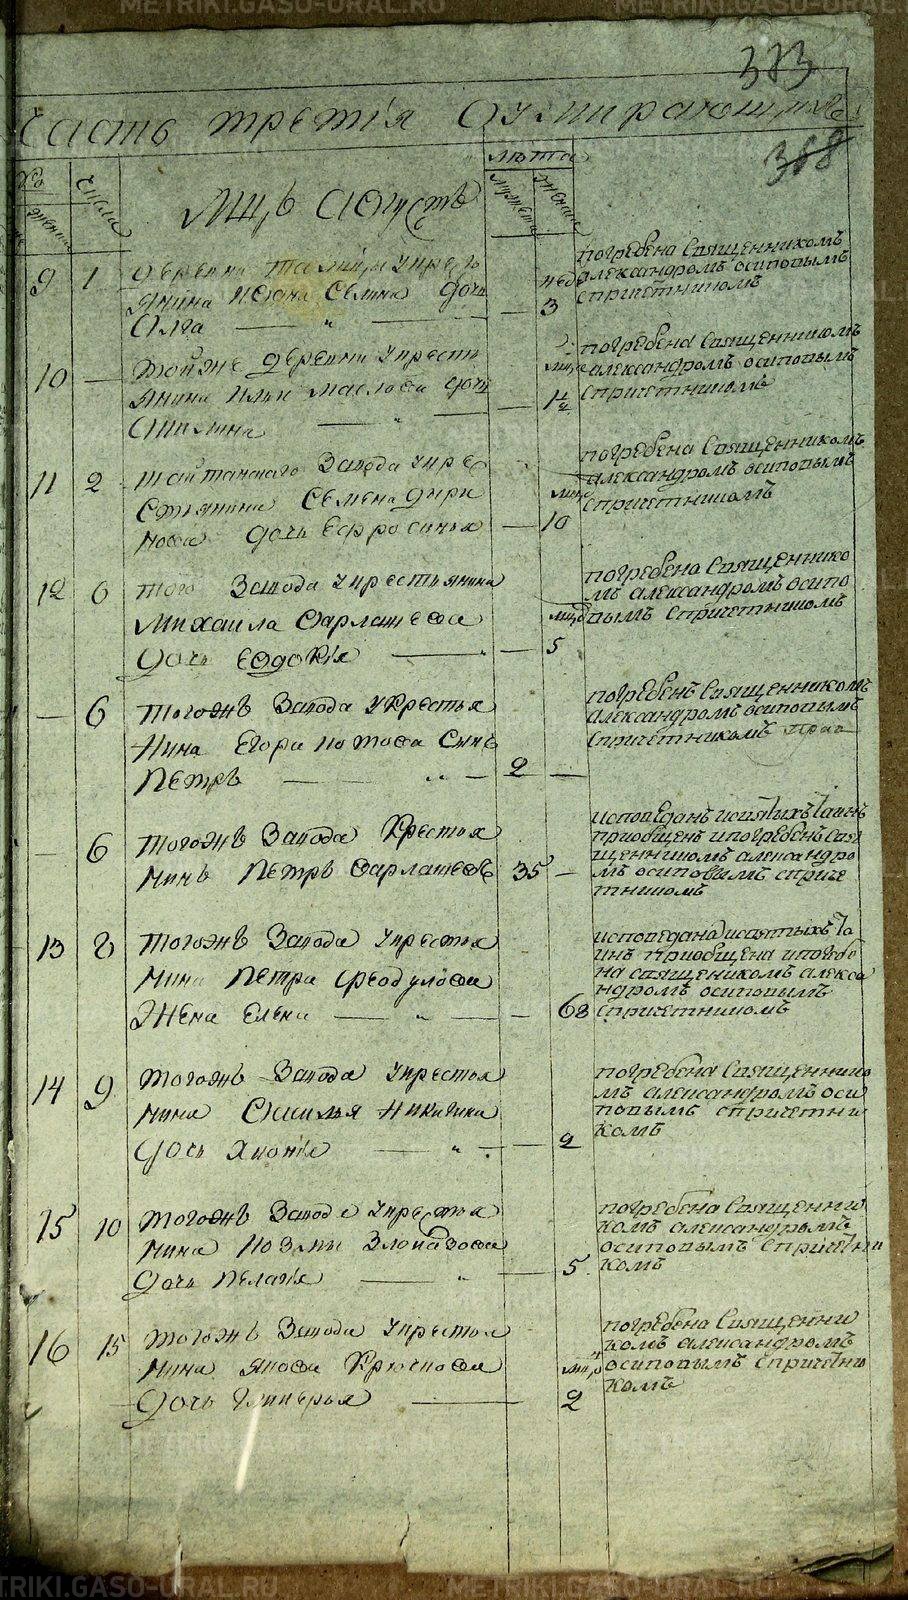 383
Часть третія О умирающихъ
388
числа
лѣта
мужеска
женска
Мцъ Августъ
9 1 деревни Талицы у крестъ
янина Ивана Семина дочь
Олга — 3
погребена священникомъ
александромъ осиповымъ
спричетникомъ
10 — тойже деревни у кресть
янина Ильи маслова дочь
— 1 1/2
погребена священникомъ
александромъ осиповымъ
спричетникомъ
11 2 шайтанскаго завода у крес
стьянина Семена
дочь Ефросинья — 10
погребена священникомъ
александромъ осиповымъ
спричетникомъ
12 6 того завода у крестьянина
Михаила Варлашева
дочь Евдокія — 5
погребена священнико
мъ александромъ осипо
вымъ спричетникомъ
— 6 тогожъ завода у крестья
нина Егора котова сынъ
Петръ — 2 —
погребенъ священникомъ
александромъ осиповымъ
спричетникомъ
— 6 тогожъ завода крестья
нинъ Петръ варлашевъ 35 —
исповеданъ исвятыхъ таинъ
приобщенъ ипогребенъ свя
щенникомъ александро
мъ осиповымъ сприче
тникомъ
13 8 тогожъ завода у крестья
нина Петра Феодулова
жена Елена — 68
исповедана исвятыхъ та
инъ приобщена ипогребе
на священикомъ алекса
ндромъ осиповымъ
спричетникомъ
14 9 тогожъ завода у крестья
нина Василья Никитина
дочь Хионія — 2
погребена священнико
мъ александромъ оси
повымъ спричетни
комъ
15 10 тогожъ завода у крестья
нина Козмы Злоказова
дочь Пелагія — 5
погребена священни
комъ александромъ
осиповымъ спричетни
комъ
16 15 тогожъ завода у крестья
нина Якова Крючкова
дочь Гликерья — 2
погребена священни
комъ александромъ
осиповымъ спричетни
комъ
METRIKI.GASO-URAL.RU